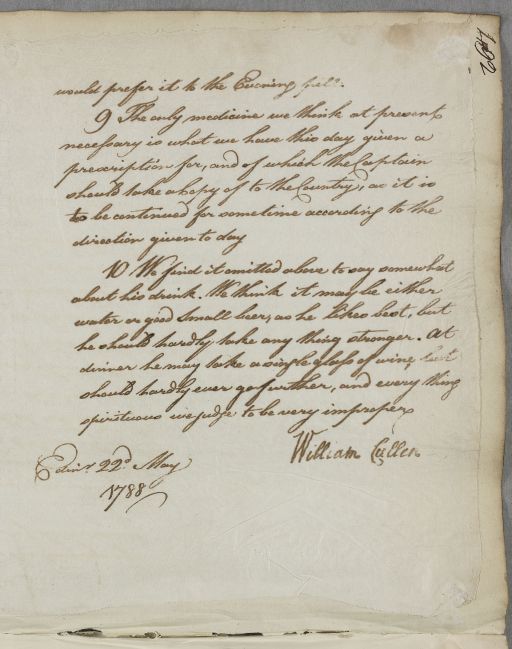 492
would prefer it to the Evening
9 The only medicine we think at present
necessary is what we have this day given a
prescription for, and of which the Captain
should take a Copy of to the Country, as it is
to be continued for sometime according to the
direction given to day
10 We find it omitted above to say somewhat
about his drink. We think it may be either
water or good Small beer, as he likes best, but
he should hardly take any thing stronger. At
dinner he may take a single glass of wine, but
should hardly ever go further, and every thing
spirituous we judge to be very improper
William Cullen
Edinr. 22d. May
1788